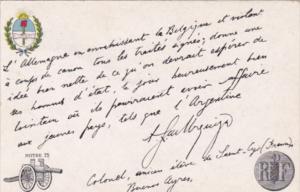 L'Allemagne en envahissant la Belgique et violant
à coups de canon tous les traités signés, donne une
idée bien nette de ce qu'on devrait espérer de
ses hommes d'état, le jour heureusement bien
lointain où ils pourraient avoir affaire
aux jeunes pays, tels que l'Argentine
NOTRE 75
RF
Colonel, ancien élève de Saint-Cyr (France)
Buenos Ayres